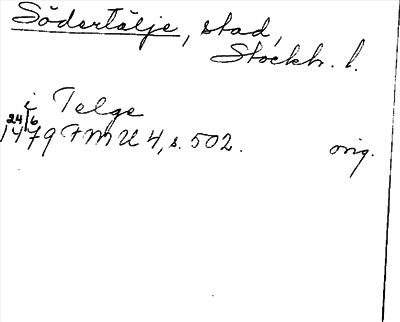 Södertälje, stad,
Stockh. l.
i Telge
24/6
1479 FMU 4, s. 502. orig.